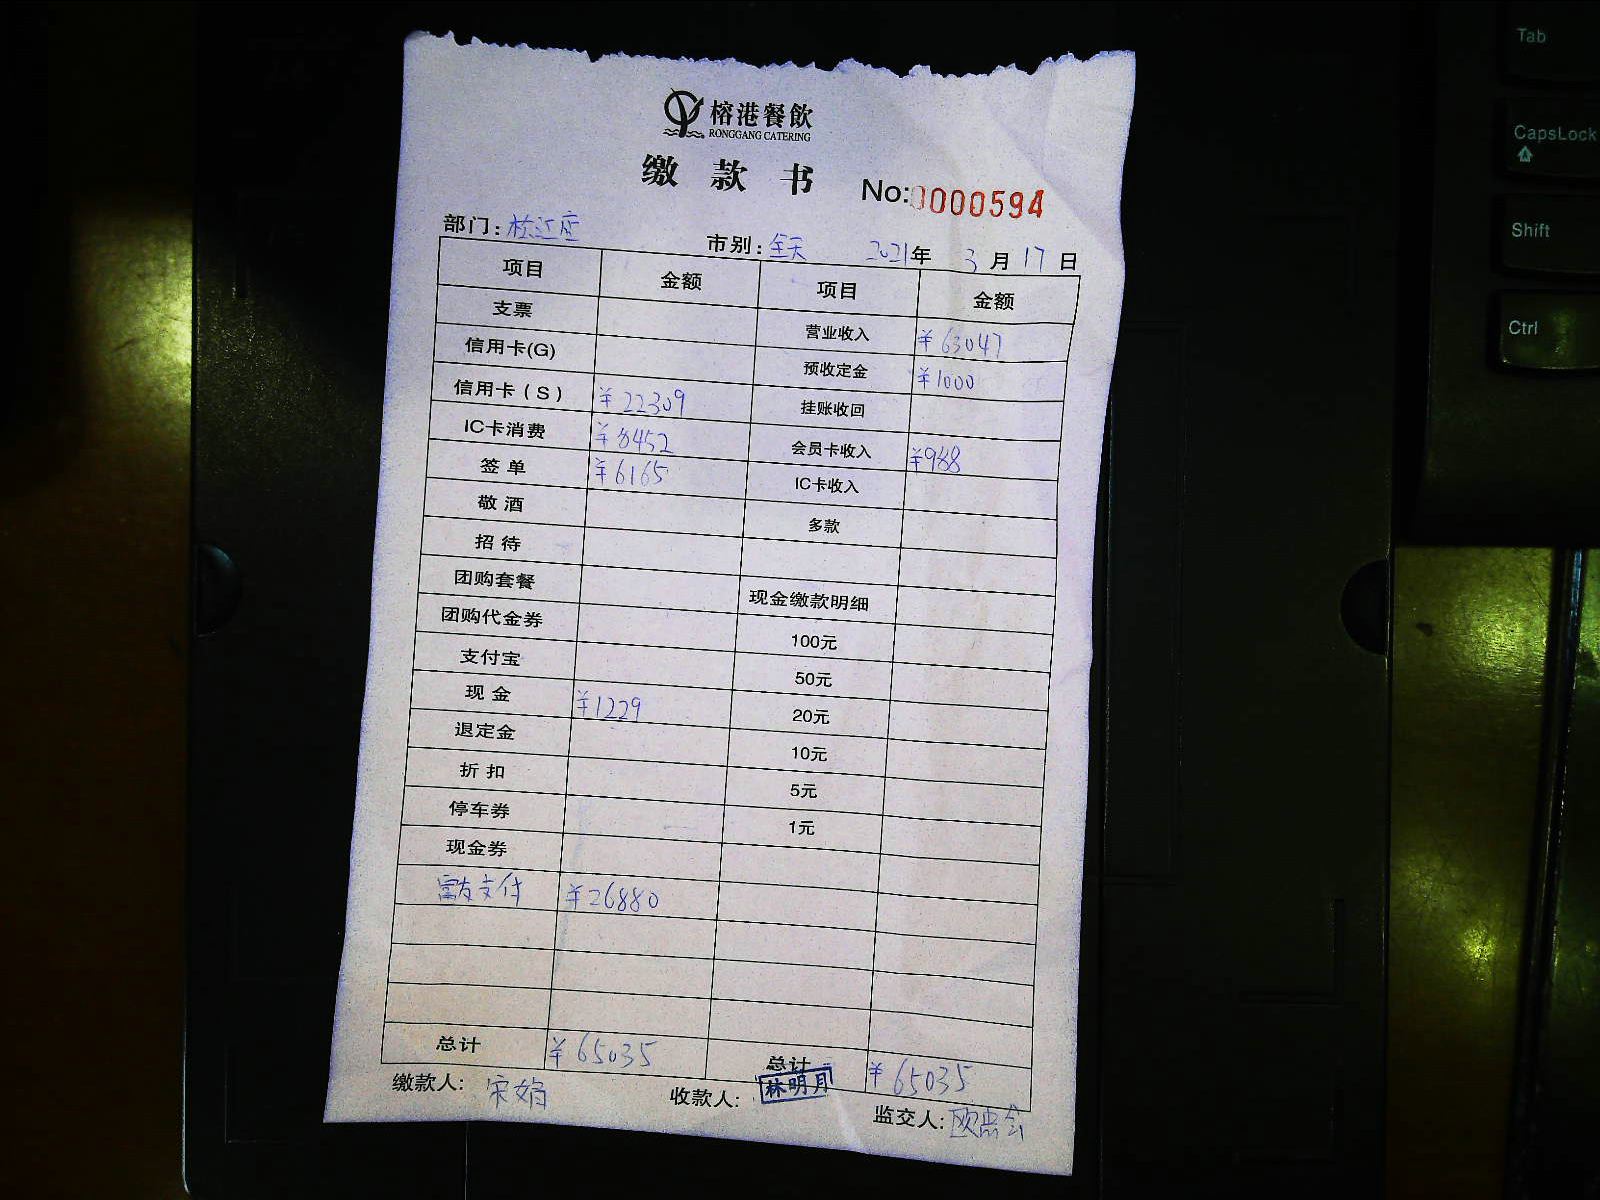 榕港餐飲
RONGGANG CATERING
缴 款 书
No:0000594
部门: 松江店 市别: 全天 2021年 3月 17日
项目 金额 项目 金额
支票 营业收入 ¥63047
信用卡(G) 预收定金 ¥1000
信用卡(S) ¥22309 挂账收回
IC卡消费 ¥8452 会员卡收入 ¥988
签单 ¥6165 IC卡收入
敬酒 多款
招待
团购套餐 现金缴款明细
团购代金券 100元
支付宝 50元
现金 ¥1229 20元
退定金 10元
折扣 5元
停车券 1元
现金券
富友支付 ¥26880
总计 ¥65035 总计 ¥65035
缴款人: 宋娟 收款人: 林明月 监交人: 欧
Tab
CapsLock
Shift
Ctrl